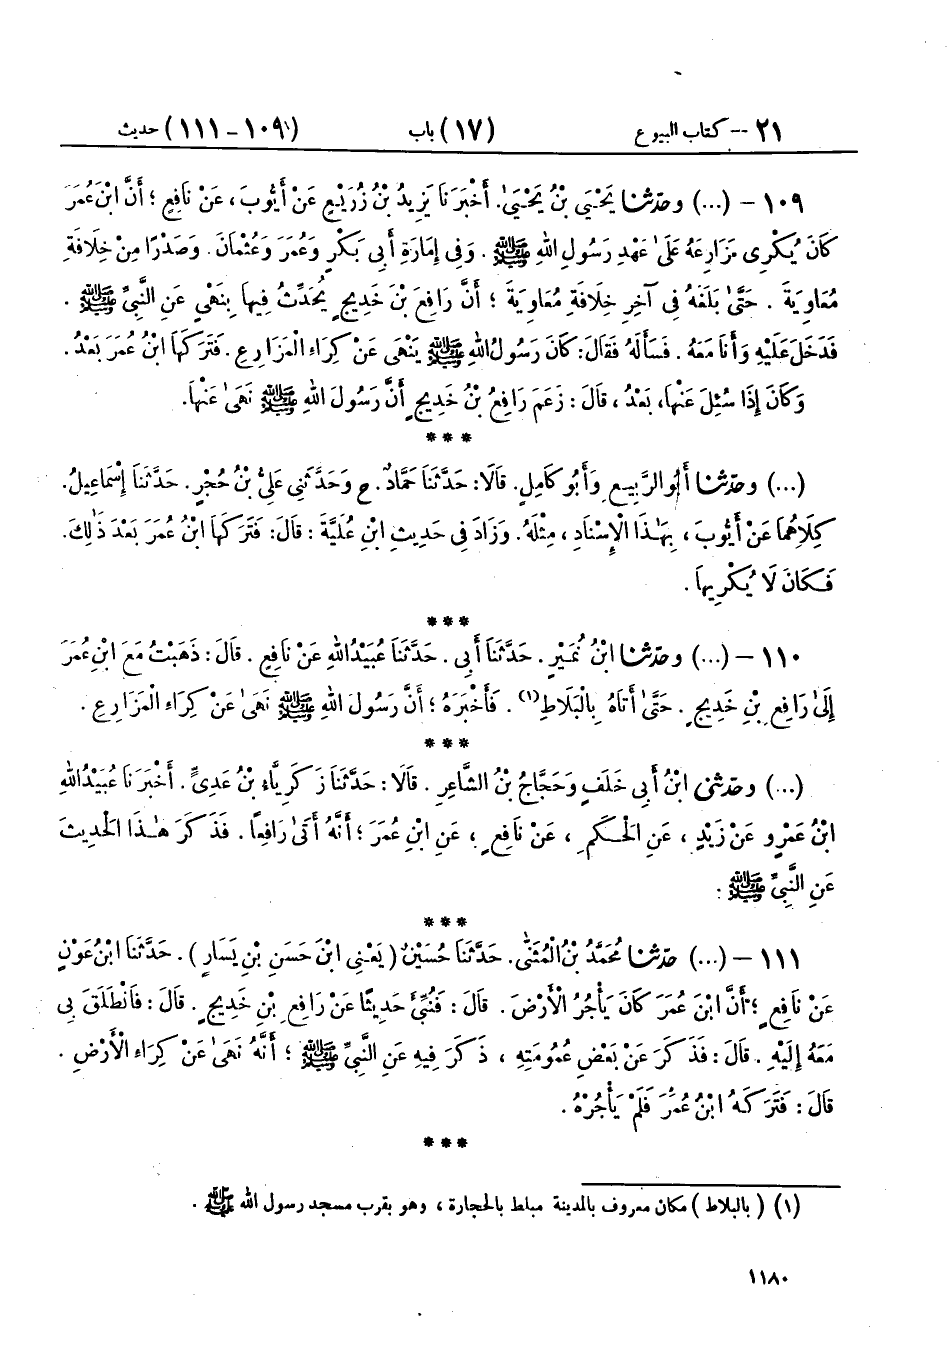 ٢١ -- كتاب البيوع (١٧) باب (١٠٩ - ١١١) حديث
١٠٩ - (...) وحدّثنا يَحْيَىٰ بْنُ يَحْيَىٰ. أَخْبَرَنَا يَزِيدُ بْنُ زُرَيْعٍ عَنْ أَيُّوبَ، عَنْ نَافِعٍ؛ أَنَّ ابْنَ عُمَرَ
كَانَ يُكْرِى مَزَارِعَهُ عَلَىٰ عَهْدِ رَسُولِ اللهِ ﷺ. وَفِى إِمَارَةِ أَبِى بَكْرٍ وَعُمَرَ وَعُثْمَانَ. وَصَدْرًا مِنْ خِلَافَةِ
مُعَاوِيَةَ. حَتَّىٰ بَلَغَهُ فِى آخِرِ خِلَافَةِ مُعَاوِيَةَ؛ أَنَّ رَافِعَ بْنَ خَدِيجٍ يُحَدِّثُ فِيهَا بِنَهْىٍ عَنِ النَّبِىِّ ﷺ.
فَدَخَلَ عَلَيْهِ وَأَنَا مَعَهُ. فَسَأَلَهُ فَقَالَ: كَانَ رَسُولُ اللهِ ﷺ يَنْهَىٰ عَنْ كِرَاءِ الْمَزَارِعِ. فَتَرَكَهَا ابْنُ عُمَرَ بَعْدُ.
وَكَانَ إِذَا سُئِلَ عَنْهَا، بَعْدُ، قَالَ: زَعَمَ رَافِعُ بْنُ خَدِيجٍ أَنَّ رَسُولَ اللهِ ﷺ نَهَىٰ عَنْهَا.
***
(...) وحدّثنا أَبُو الرَّبِيعِ وَأَبُو كَامِلٍ. قَالَا: حَدَّثَنَا حَمَّادٌ. ح وَحَدَّثَنِى عَلِىُّ بْنُ حُجْرٍ. حَدَّثَنَا إِسْمَاعِيلُ.
كِلَاهُمَا عَنْ أَيُّوبَ، بِهَٰذَا الْإِسْنَادِ، مِثْلَهُ. وَزَادَ فِى حَدِيثِ ابْنِ عُلَيَّةَ: قَالَ: فَتَرَكَهَا ابْنُ عُمَرَ بَعْدَ ذَٰلِكَ.
فَكَانَ لَا يُكْرِيهَا.
***
١١٠ - (...) وحدّثنا ابْنُ نُمَيْرٍ. حَدَّثَنَا أَبِى. حَدَّثَنَا عُبَيْدُاللهِ عَنْ نَافِعٍ. قَالَ: ذَهَبْتُ مَعَ ابْنِ عُمَرَ
إِلَىٰ رَافِعِ بْنِ خَدِيجٍ. حَتَّىٰ أَتَاهُ بِالْبَلَاطِ(١). فَأَخْبَرَهُ؛ أَنَّ رَسُولَ اللهِ ﷺ نَهَىٰ عَنْ كِرَاءِ الْمَزَارِعِ.
***
(...) وحدّثنى ابْنُ أَبِى خَلَفٍ وَحَجَّاجُ بْنُ الشَّاعِرِ. قَالَا: حَدَّثَنَا زَكَرِيَّاءُ بْنُ عَدِىٍّ. أَخْبَرَنَا عُبَيْدُاللهِ
ابْنُ عَمْرٍو عَنْ زَيْدٍ، عَنِ الْحَكَمِ، عَنْ نَافِعٍ، عَنِ ابْنِ عُمَرَ؛ أَنَّهُ أَتَىٰ رَافِعًا. فَذَكَرَ هَٰذَا الْحَدِيثَ
عَنِ النَّبِىِّ ﷺ.
***
١١١ - (...) حدّثنا مُحَمَّدُ بْنُ الْمُثَنَّىٰ. حَدَّثَنَا حُسَيْنٌ (يَعْنِى ابْنَ حَسَنِ بْنِ يَسَارٍ). حَدَّثَنَا ابْنُ عَوْنٍ
عَنْ نَافِعٍ؛ أَنَّ ابْنَ عُمَرَ كَانَ يَأْجُرُ الْأَرْضَ. قَالَ: فَنُبِّئَ حَدِيثًا عَنْ رَافِعِ بْنِ خَدِيجٍ. قَالَ: فَانْطَلَقَ بِى
مَعَهُ إِلَيْهِ. قَالَ: فَذَكَرَ عَنْ بَعْضِ عُمُومَتِهِ، ذَكَرَ فِيهِ عَنِ النَّبِىِّ ﷺ؛ أَنَّهُ نَهَىٰ عَنْ كِرَاءِ الْأَرْضِ.
قَالَ: فَتَرَكَهُ ابْنُ عُمَرَ فَلَمْ يَأْجُرْهُ.
***
(١) (بالبلاط) مكان معروف بالمدينة مبلط بالحجارة، وهو بقرب مسجد رسول الله ﷺ.
١١٨٠